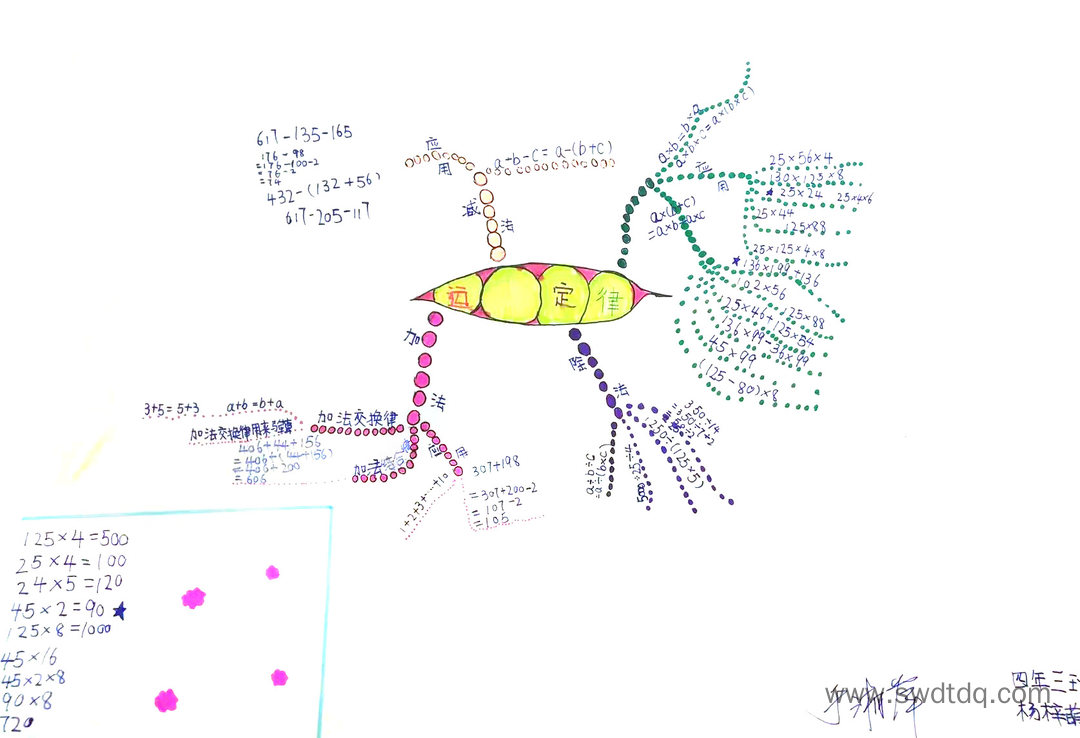 617-135-165
176-98
=176-100-2
=76-2
=74
432-(132+56)
617-205-117
应用
a-b-c=a-(b+c)
减法
a×b=b×a
a×b×c=a×(b×c)
应用
a×(b+c)
=a×b+a×c
25×56×4
130×125×8
★25×24 25×4×6
25×44
125×88
25×125×4×8
★136×199+136
102×56
125×88
125×46+125×54
136×99-36×99
45×99
(125-80)×8
运定律
加法
除法
3+5=5+3 a+b=b+a
加法交换律
406+44+156
=406+(44+156)
=406+200
=606
加法结合律
应用
1+2+3+…+10
307+198
=307+200-2
=107-2
=105
a÷b÷c
=a÷(b×c)
5000÷25÷4
1250÷(125×5)
350÷14
125×4=500
25×4=100
24×5=120
45×2=90★
125×8=1000
45×16
45×2×8
90×8
720
www.swdtdq.com
四年三班
杨梓萌